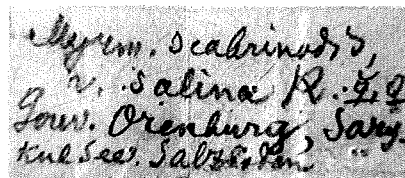 Myrm. scabrinodis,
v. salina R. ☿, ♀
Gouv. Orenburg, Sary-
kul See. Salzboden